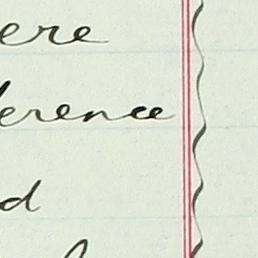 ere
erence
d